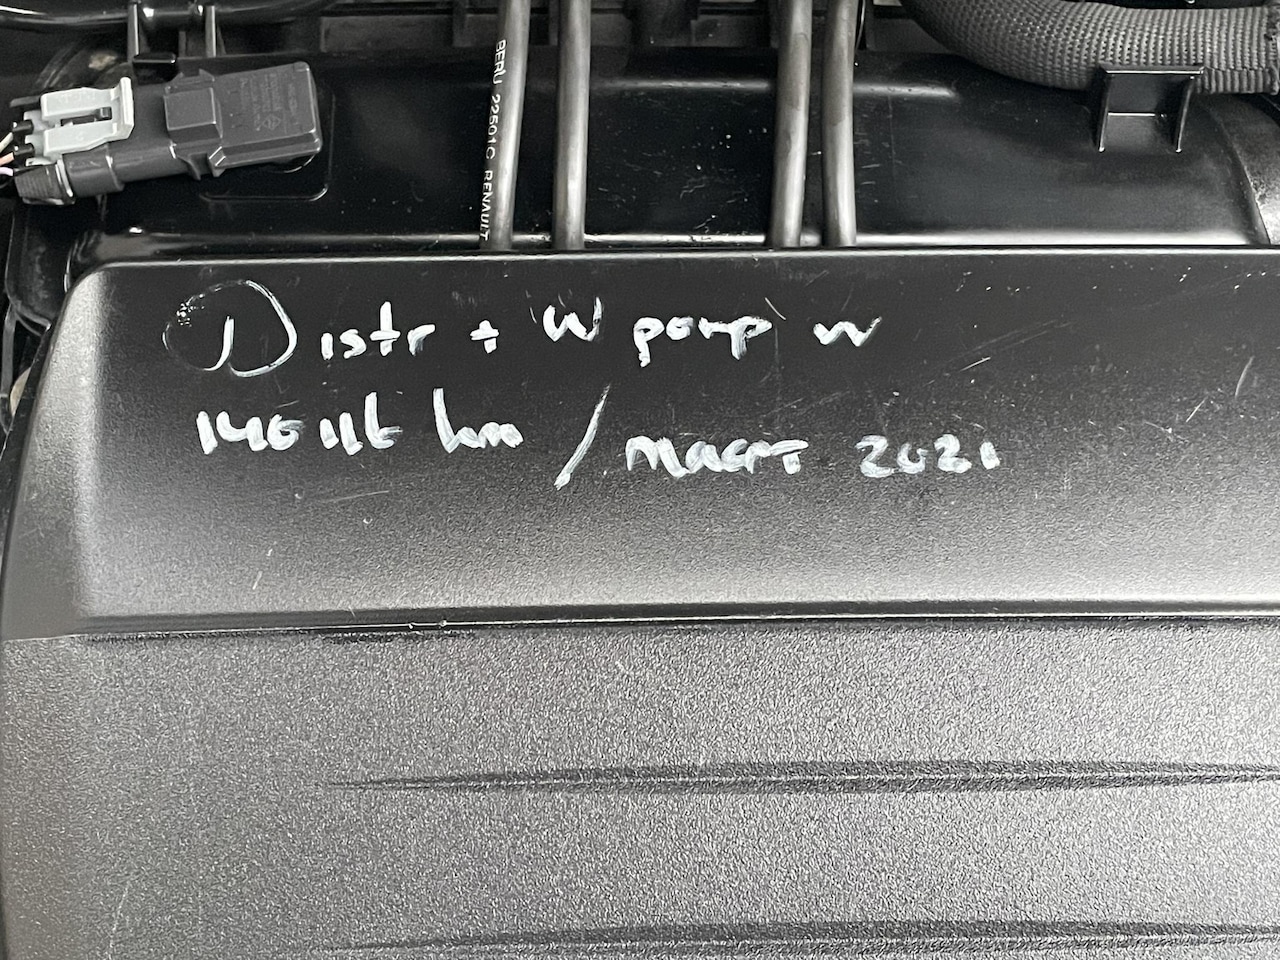 BERU 22501C RENAULT
Distr + W pomp vv
146116 km / maart 2021